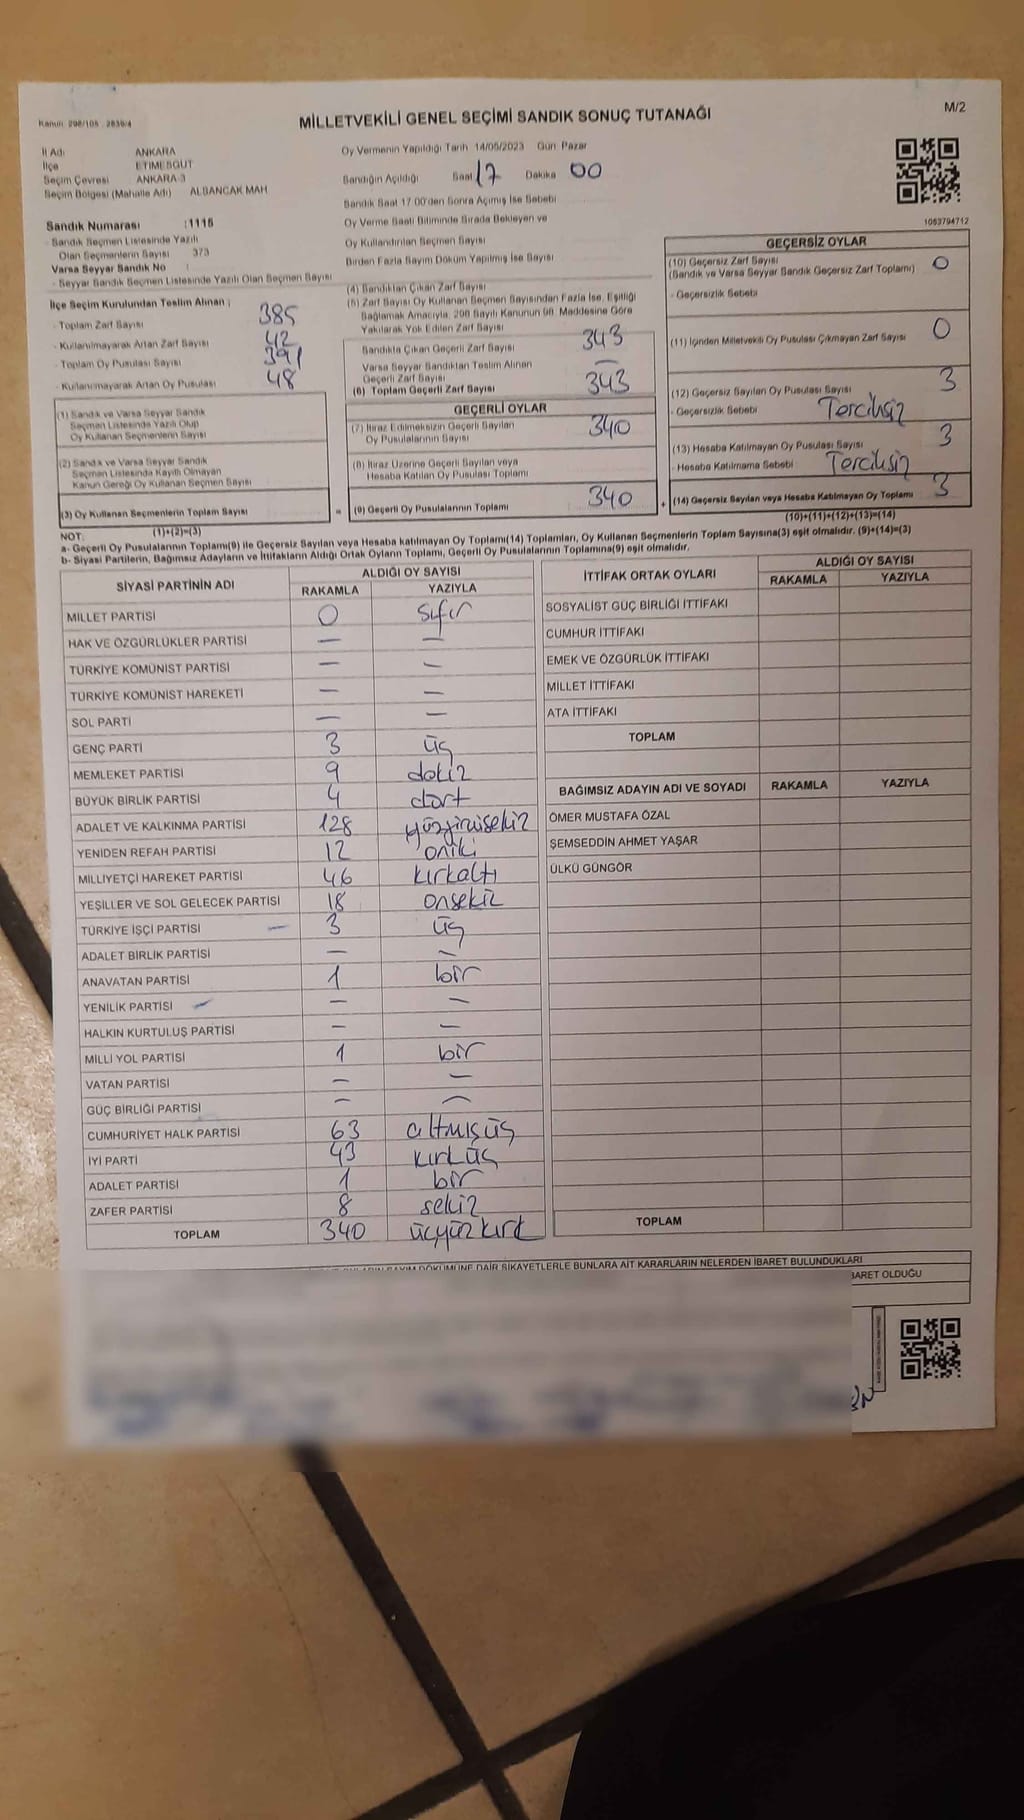 Kanun: 298/105 - 2839/4
MİLLETVEKİLİ GENEL SEÇİMİ SANDIK SONUÇ TUTANAĞI
M/2
İl Adı ANKARA
İlçe ETİMESGUT
Seçim Çevresi ANKARA-3
Seçim Bölgesi (Mahalle Adı) ALSANCAK MAH
Sandık Numarası :1115
- Sandık Seçmen Listesinde Yazılı
Olan Seçmenlerin Sayısı 373
Varsa Seyyar Sandık No :
- Seyyar Sandık Seçmen Listesinde Yazılı Olan Seçmen Sayısı
İlçe Seçim Kurulundan Teslim Alınan ;
- Toplam Zarf Sayısı 385
- Kullanılmayarak Artan Zarf Sayısı 42
- Toplam Oy Pusulası Sayısı 391
- Kullanılmayarak Artan Oy Pusulası 48
(1) Sandık ve Varsa Seyyar Sandık
Seçmen Listesinde Yazılı Olup
Oy Kullanan Seçmenlerin Sayısı
(2) Sandık ve Varsa Seyyar Sandık
Seçmen Listesinde Kayıtlı Olmayan
Kanun Gereği Oy Kullanan Seçmen Sayısı
(3) Oy Kullanan Seçmenlerin Toplam Sayısı
(1)+(2)=(3)
Oy Vermenin Yapıldığı Tarih 14/05/2023 Gün Pazar
Sandığın Açıldığı Saat 17 Dakika 00
Sandık Saat 17:00'den Sonra Açımış İse Sebebi
Oy Verme Saati Bitiminde Sırada Bekleyen ve
Oy Kullandırılan Seçmen Sayısı
Birden Fazla Sayım Döküm Yapılmış İse Sayısı
(4) Sandıktan Çıkan Zarf Sayısı
(5) Zarf Sayısı Oy Kullanan Seçmen Sayısından Fazla İse, Eşitliği
Bağlamak Amacıyla, 298 Sayılı Kanunun 98. Maddesine Göre
Yakılarak Yok Edilen Zarf Sayısı
Sandıkta Çıkan Geçerli Zarf Sayısı 343
Varsa Seyyar Sandıktan Teslim Alınan
Geçerli Zarf Sayısı —
(6) Toplam Geçerli Zarf Sayısı 343
GEÇERLİ OYLAR
(7) İtiraz Edilmeksizin Geçerli Sayılan
Oy Pusulalarının Sayısı 340
(8) İtiraz Üzerine Geçerli Sayılan veya
Hesaba Katılan Oy Pusulası Toplamı
= (9) Geçerli Oy Pusulalarının Toplamı 340 +
1053794712
GEÇERSİZ OYLAR
(10) Geçersiz Zarf Sayısı 0
(Sandık ve Varsa Seyyar Sandık Geçersiz Zarf Toplamı)
- Geçersizlik Sebebi
(11) İçinden Milletvekili Oy Pusulası Çıkmayan Zarf Sayısı 0
(12) Geçersiz Sayılan Oy Pusulası Sayısı 3
- Geçersizlik Sebebi Tercihsiz
(13) Hesaba Katılmayan Oy Pusulası Sayısı 3
- Hesaba Katılmama Sebebi Tercihsiz
(14) Geçersiz Sayılan veya Hesaba Katılmayan Oy Toplamı 3
(10)+(11)+(12)+(13)=(14)
NOT:
a- Geçerli Oy Pusulalarının Toplamı(9) ile Geçersiz Sayılan veya Hesaba katılmayan Oy Toplamı(14) Toplamları, Oy Kullanan Seçmenlerin Toplam Sayısına(3) eşit olmalıdır. (9)+(14)=(3)
b- Siyasi Partilerin, Bağımsız Adayların ve İttifakların Aldığı Ortak Oyların Toplamı, Geçerli Oy Pusulalarının Toplamına(9) eşit olmalıdır.
SİYASİ PARTİNİN ADI ALDIĞI OY SAYISI
RAKAMLA YAZIYLA
MİLLET PARTİSİ 0 sıfır
HAK VE ÖZGÜRLÜKLER PARTİSİ — —
TÜRKİYE KOMÜNİST PARTİSİ — —
TÜRKİYE KOMÜNİST HAREKETİ — —
SOL PARTİ — —
GENÇ PARTİ 3 üç
MEMLEKET PARTİSİ 9 dokuz
BÜYÜK BİRLİK PARTİSİ 4 dört
ADALET VE KALKINMA PARTİSİ 128 yüzyirmisekiz
YENİDEN REFAH PARTİSİ 12 oniki
MİLLİYETÇİ HAREKET PARTİSİ 46 kırkaltı
YEŞİLLER VE SOL GELECEK PARTİSİ 18 onsekiz
TÜRKİYE İŞÇİ PARTİSİ — 3 üç
ADALET BİRLİK PARTİSİ — —
ANAVATAN PARTİSİ 1 bir
YENİLİK PARTİSİ — —
HALKIN KURTULUŞ PARTİSİ — —
MİLLİ YOL PARTİSİ 1 bir
VATAN PARTİSİ — —
GÜÇ BİRLİĞİ PARTİSİ — —
CUMHURİYET HALK PARTİSİ 63 altmışüç
İYİ PARTİ 43 kırküç
ADALET PARTİSİ 1 bir
ZAFER PARTİSİ 8 sekiz
TOPLAM 340 üçyüzkırk
İTTİFAK ORTAK OYLARI ALDIĞI OY SAYISI
RAKAMLA YAZIYLA
SOSYALİST GÜÇ BİRLİĞİ İTTİFAKI
CUMHUR İTTİFAKI
EMEK VE ÖZGÜRLÜK İTTİFAKI
MİLLET İTTİFAKI
ATA İTTİFAKI
TOPLAM
BAĞIMSIZ ADAYIN ADI VE SOYADI RAKAMLA YAZIYLA
ÖMER MUSTAFA ÖZAL
ŞEMSEDDİN AHMET YAŞAR
ÜLKÜ GÜNGÖR
TOPLAM
SAYIM DÖKÜMÜNE DAİR ŞİKAYETLERLE BUNLARA AİT KARARLARIN NELERDEN İBARET BULUNDUKLARI
İBARET OLDUĞU